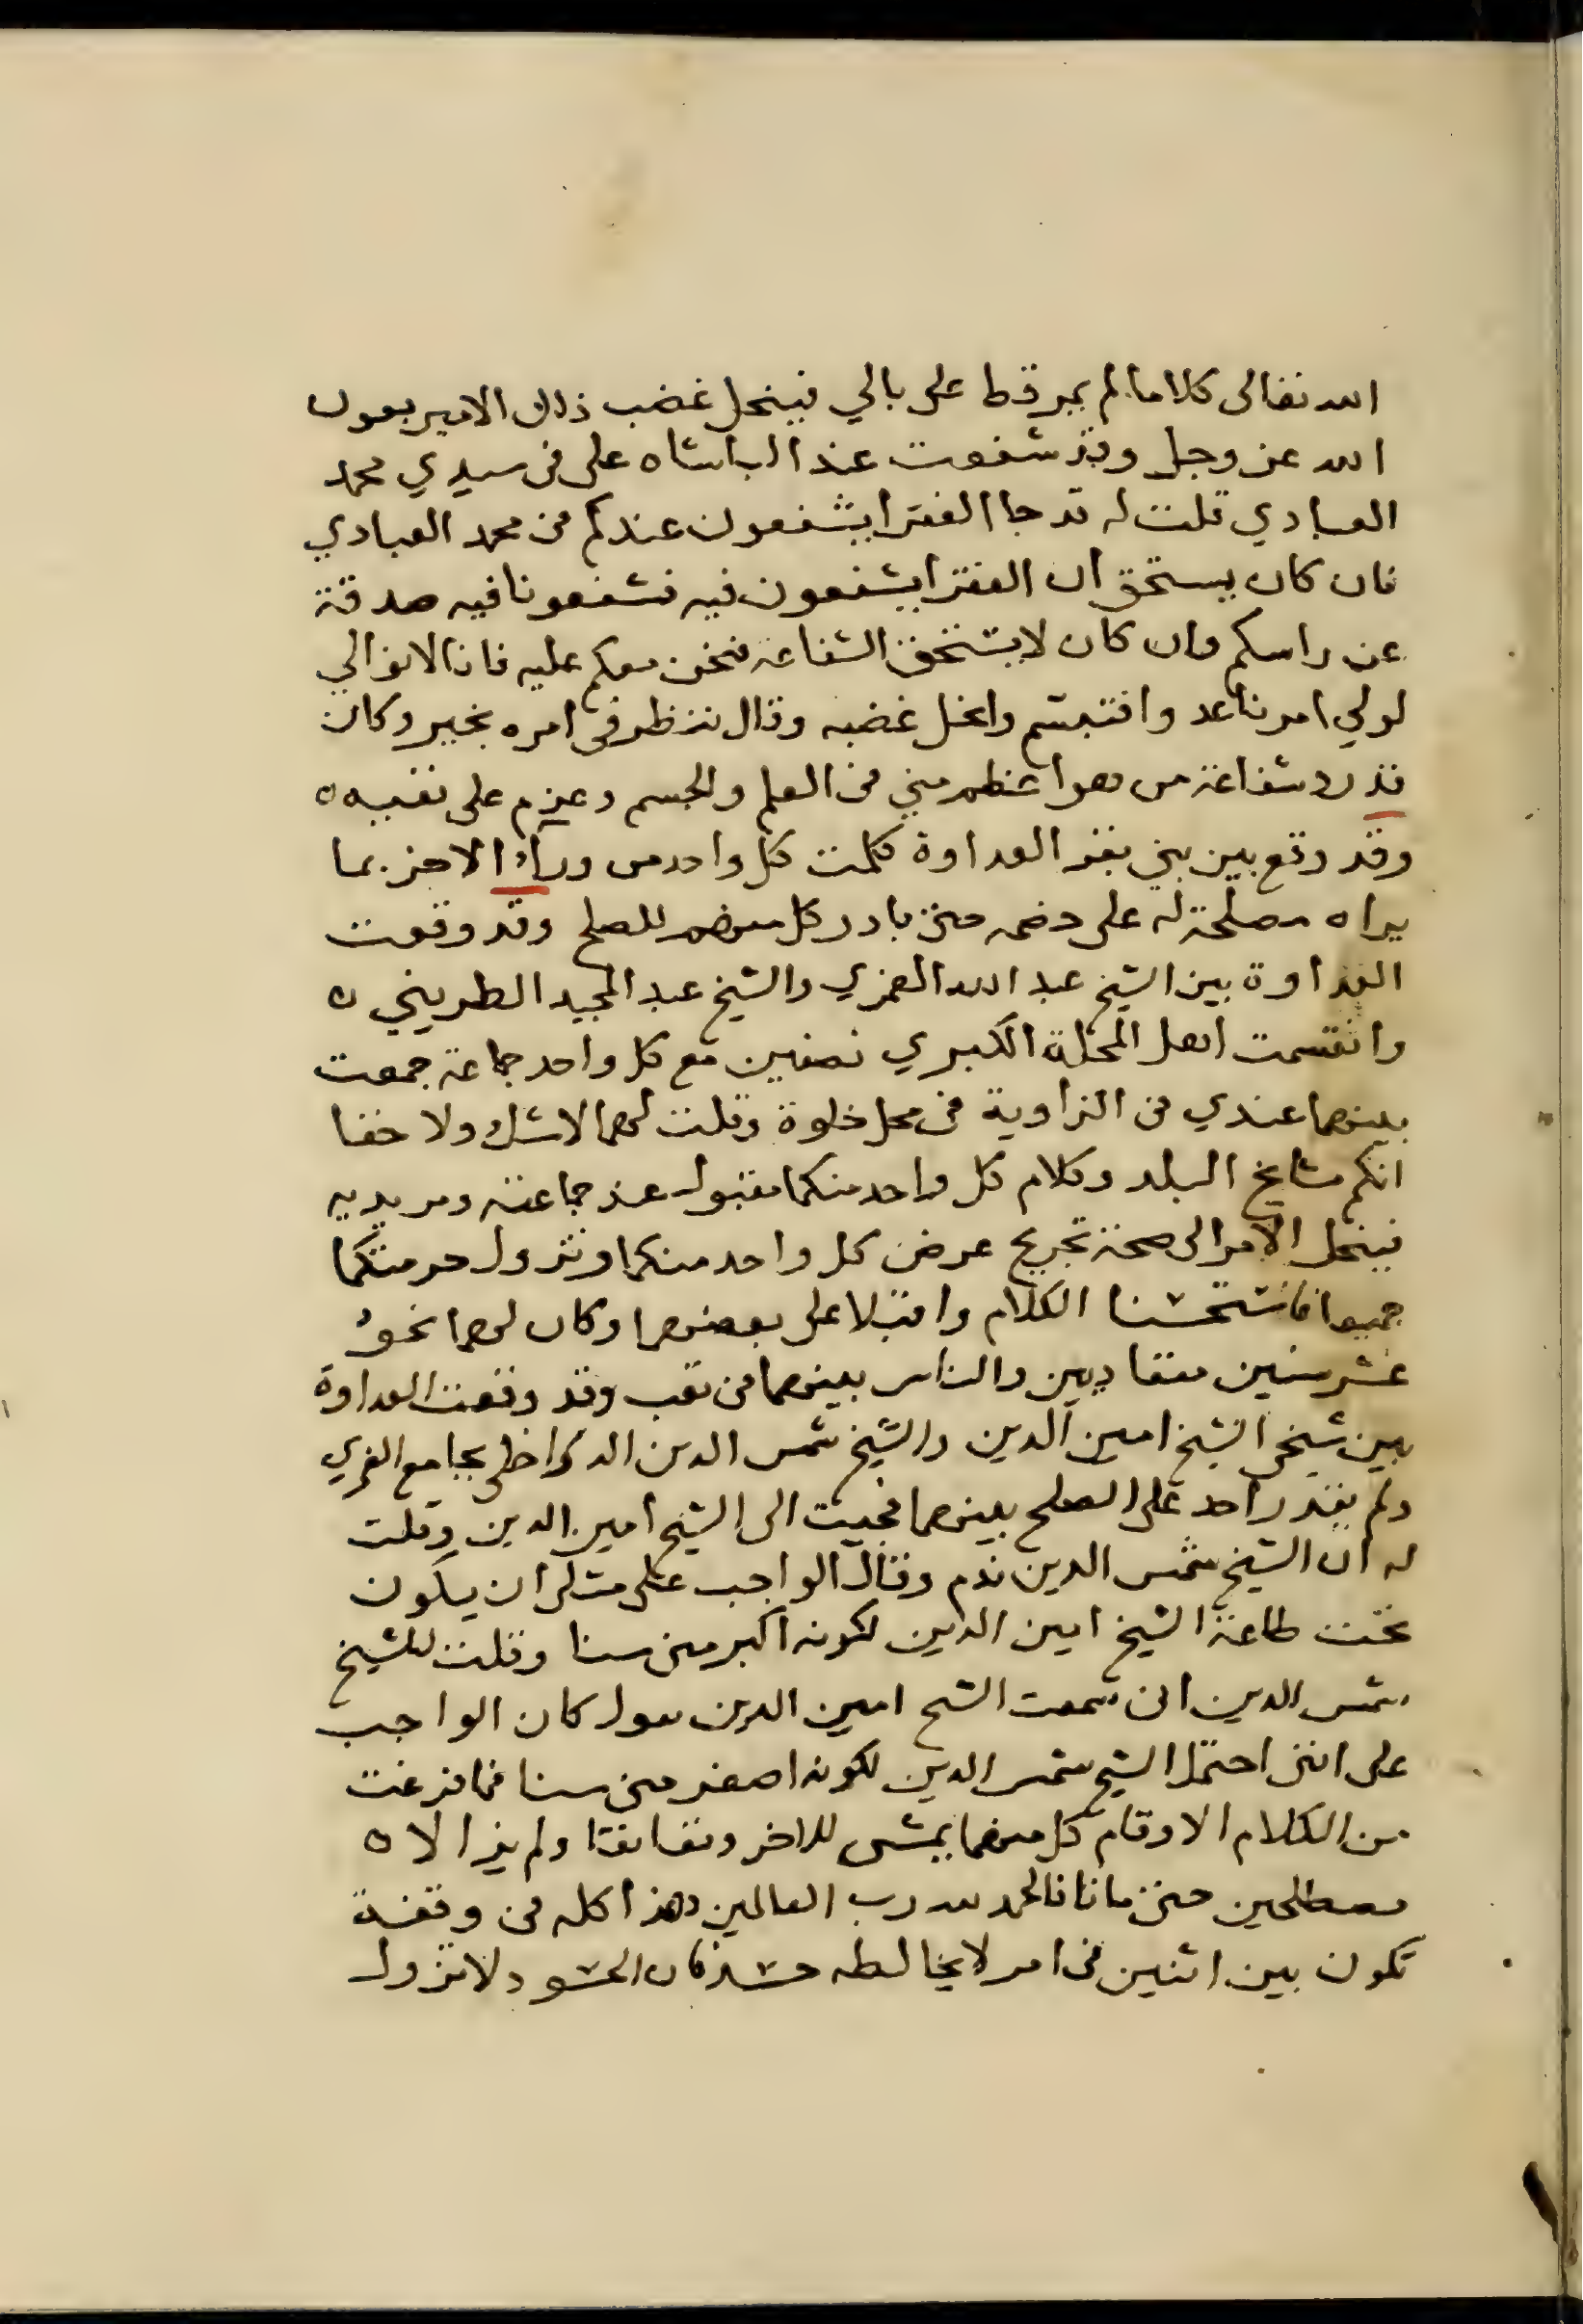 الله تعالى كلاما لم يمر قط على بالي فينحل غضب ذلك الامير بعون
الله عز وجل وقد شفعت عند الباشاه على في سيدي محمد
العبادي قلت له قد جا الفقرا يشفعون عندكم في محمد العبادي
فان كان يستحق ان الفقرا يشفعون فيه فشفعونا فيه صدقة
عن راسكم وان كان لا يستحق الشفاعة فنحن معكم عليه فاذا لا نوالي
لولي امرنا عد وا فتبسم وانحل غضبه وقال ننظر في امره بخير وكان
قد رد شفاعة من هو اعظم مني في العلم والجسم وعزم على نفيه ٥
وقد وقع بين بني بغر العداوة فكلمت كل واحد من وراء الاخر بما
يراه مصلحة له على خصمه حتى بادر كل منهم للصلح وقد وقعت
العداوة بين الشيخ عبد الله الغمري والشيخ عبد المجيد الطريني ٥
وانقسمت اهل المحلة الكبري نصفين مع كل واحد جماعة جمعت
بينهما عندي في الزاوية في محل خلوة وقلت لهما لا شك ولا خفا
انكم مشايخ البلد وكلام كل واحد منكما مقبول عند جماعته ومريديه
فينحل الامر الى صحة تجريح عرض كل واحد منكما وتزول حرمتكما
جميعا فاستحسنا الكلام واقبلا على بعضهما وكان لهما نحو
عشر سنين متعاديين والناس بينهما في تعب وقد وقعت العداوة
بين شيخي الشيخ امين الدين والشيخ شمس الدين الدواخلي بجامع الغمري
ولم يقدر احد على الصلح بينهما فجيت الى الشيخ امين الدين وقلت
له ان الشيخ شمس الدين ندم وقال الواجب على مثلي ان يكون
تحت طاعة الشيخ امين الدين لكونه اكبر مني سنا وقلت للشيخ
شمس الدين اني سمعت الشيخ امين الدين يقول كان الواجب
على انني احتمل الشيخ شمس الدين لكونه اصغر مني سنا فما فرغت
من الكلام الا وقام كل منهما يمشي للاخر وتعانقا ولم يزالا ٥
مصطلحين حتى ماتا فالحمد لله رب العالمين وهذا كله في وقفة
تكون بين اثنين في امر لا يخالطه حسد فان الحسود لا تزول